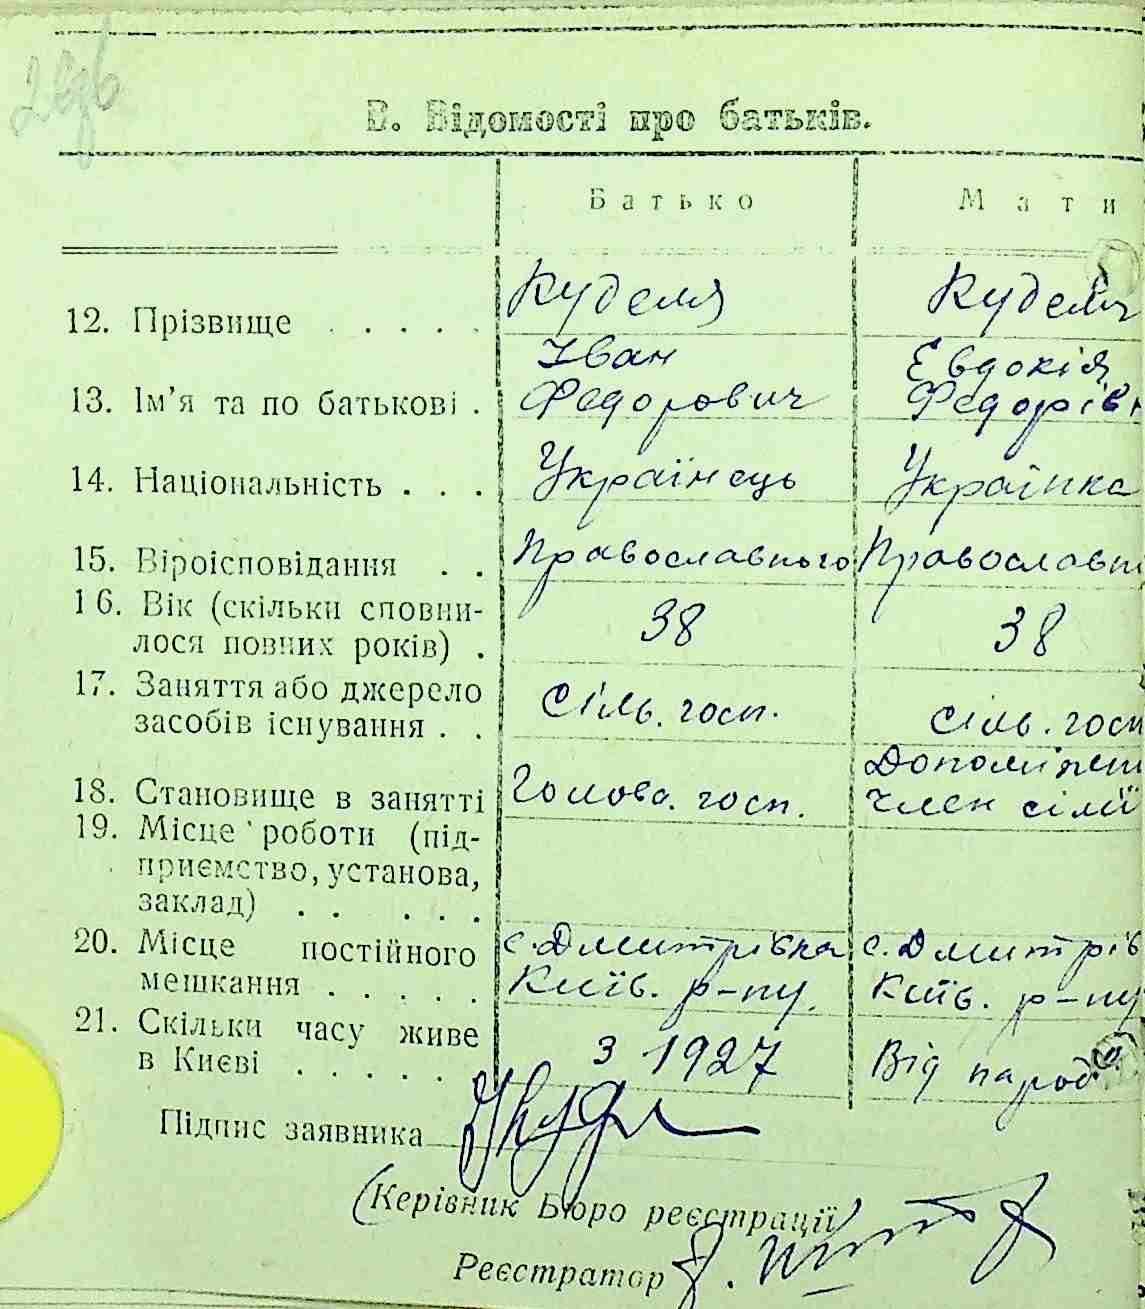 В. Відомості про батьків.
Батько Мати
12. Прізвище . . . . . Куделя Куделя
Іван Евдокія
13. Ім'я та по батькові . Федорович Федорівн
14. Національність . . . Українець Українка
15. Віроісповідання . . Православного Православн
16. Вік (скільки сповни-
лося повних років) . 38 38
17. Заняття або джерело
засобів існування . . Сіль. госп. сіль. госп
Допоміжн
18. Становище в занятті Голова. госп. член сімї
19. Місце роботи (під-
приємство, установа,
заклад) . . . . .
20. Місце постійного с. Дмитрівка с. Дмитрів
мешкання . . . . . Київ. р-ну. Київ. р-ну
21. Скільки часу живе
в Києві . . . . . з 1927 Від народ.
Підпис заявника
(Керівник Бюро реєстрації)
Реєстратор